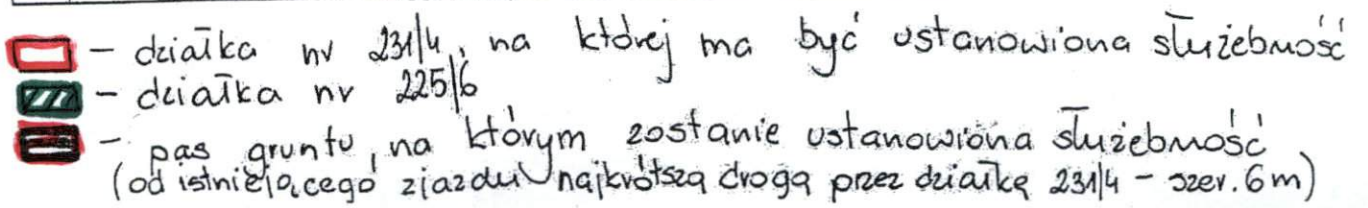 - działka nr 231/4, na której ma być ustanowiona służebność
- działka nr 225/6
- pas gruntu, na którym zostanie ustanowiona służebność
(od istniejącego zjazdu najkrótszą drogą przez działkę 231/4 - szer. 6m)